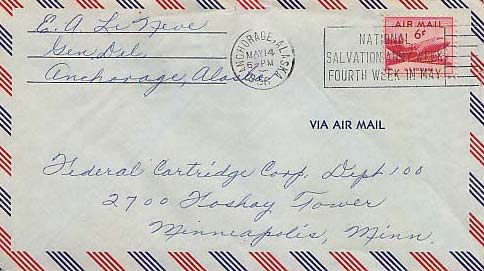 E. A. Le Neve
Gen Del.
Anchorage, Alaska
ANCHORAGE, ALASKA
MAY 14
6 PM
AIR MAIL
6¢
NATIONAL
SALVATION ARMY
FOURTH WEEK IN MAY
VIA AIR MAIL
Federal Cartridge Corp. Dept 100
2700 Foshay Tower
Minneapolis, Minn.